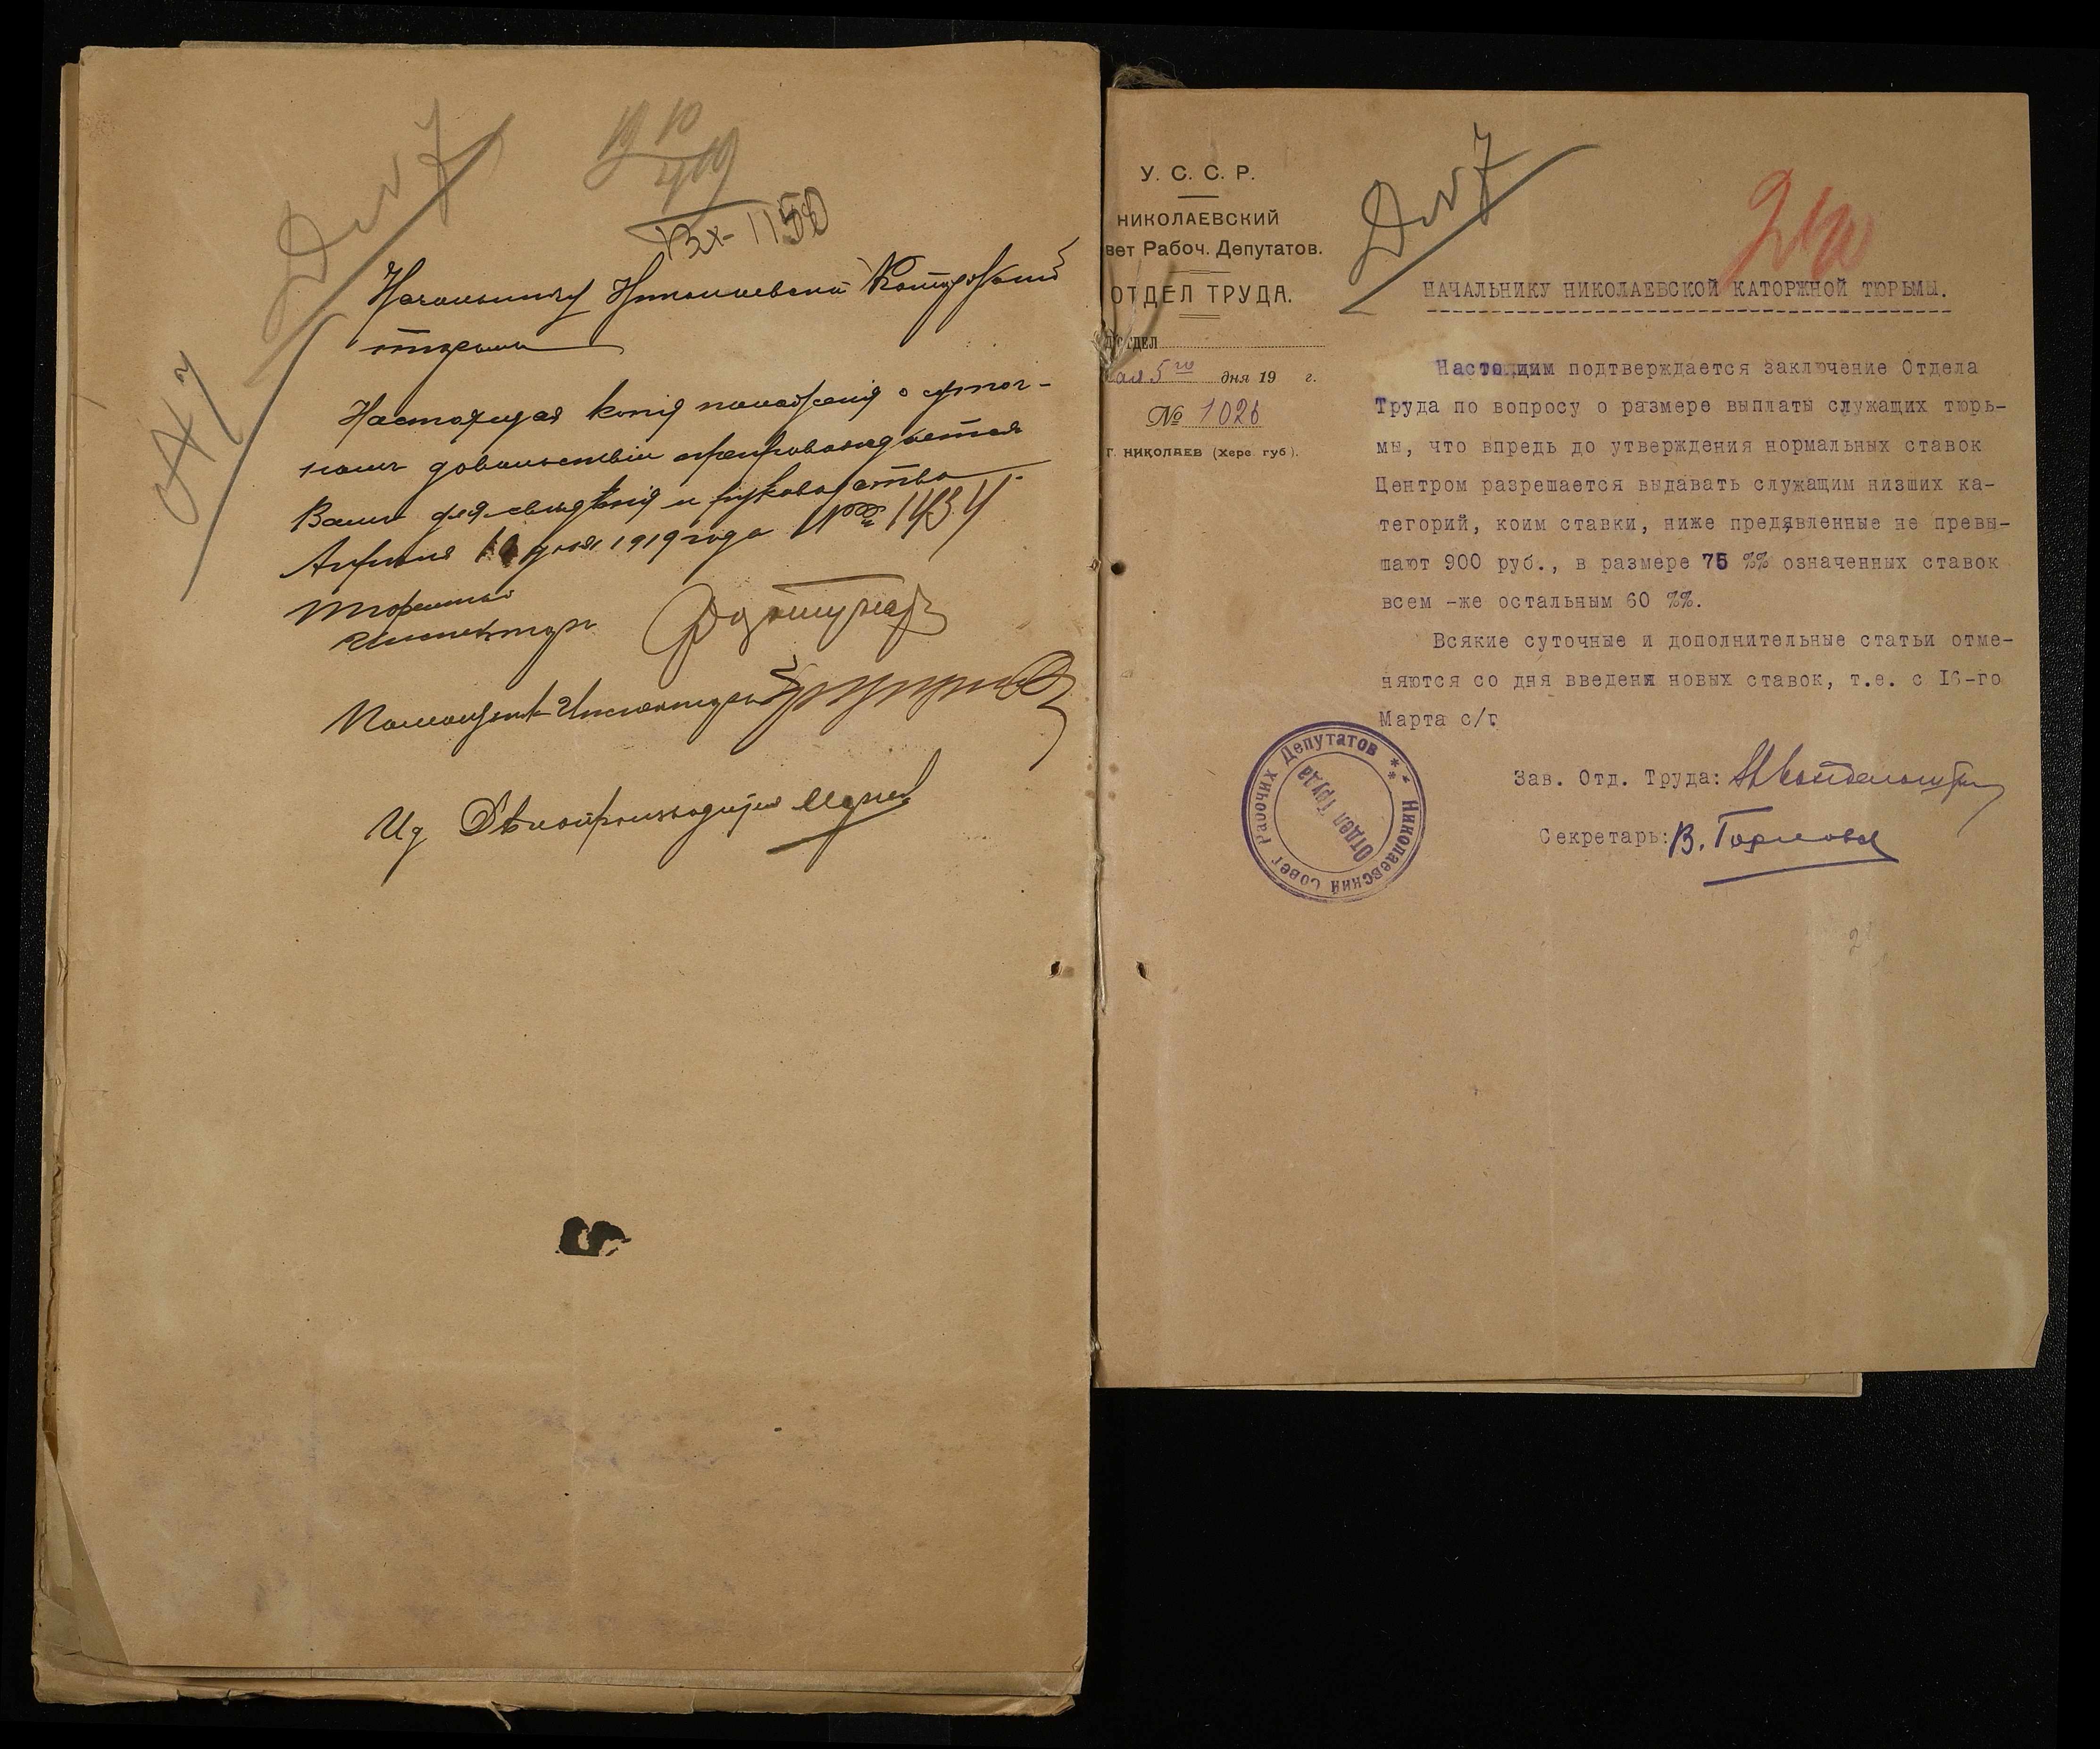 Д N 7
19 10/4 19
Вх- 1150
Начальнику Николаевской Каторжной
тюрьмы
Настоящая копія положенія о суточ-
номъ довольствіи препровождается
Вамъ для свѣдѣнія и руководства.
Апрѣля дня 1919 года № 1434
Тюремный
Инспекторъ
Помощникъ Инспектора
Ид Дѣлопроизводителя
У. С. С. Р.
НИКОЛАЕВСКИЙ
вет Рабоч. Депутатов.
ОТДЕЛ ТРУДА.
ОТДЕЛ
ая 5го дня 19 г.
№ 1026
Г. НИКОЛАЕВ (Херс губ).
Д N 7
НАЧАЛЬНИКУ НИКОЛАЕВСКОЙ КАТОРЖНОЙ ТЮРЬМЫ.
Настоящим подтверждается заключение Отдела
Труда по вопросу о размере выплаты служащих тюрь-
мы, что впредь до утверждения нормальных ставок
Центром разрешается выдавать служащим низших ка-
тегорий, коим ставки, ниже предявленные не превы-
шают 900 руб., в размере 75 %% означенных ставок
всем -же остальным 60 %%.
Всякие суточные и дополнительные статьи отме-
няются со дня введеня новых ставок, т.е. с I6-го
Марта с/г
Зав. Отд. Труда:
Секретарь: В.
Николаевский Совет Рабочих Депутатов
Отдел Труда
2